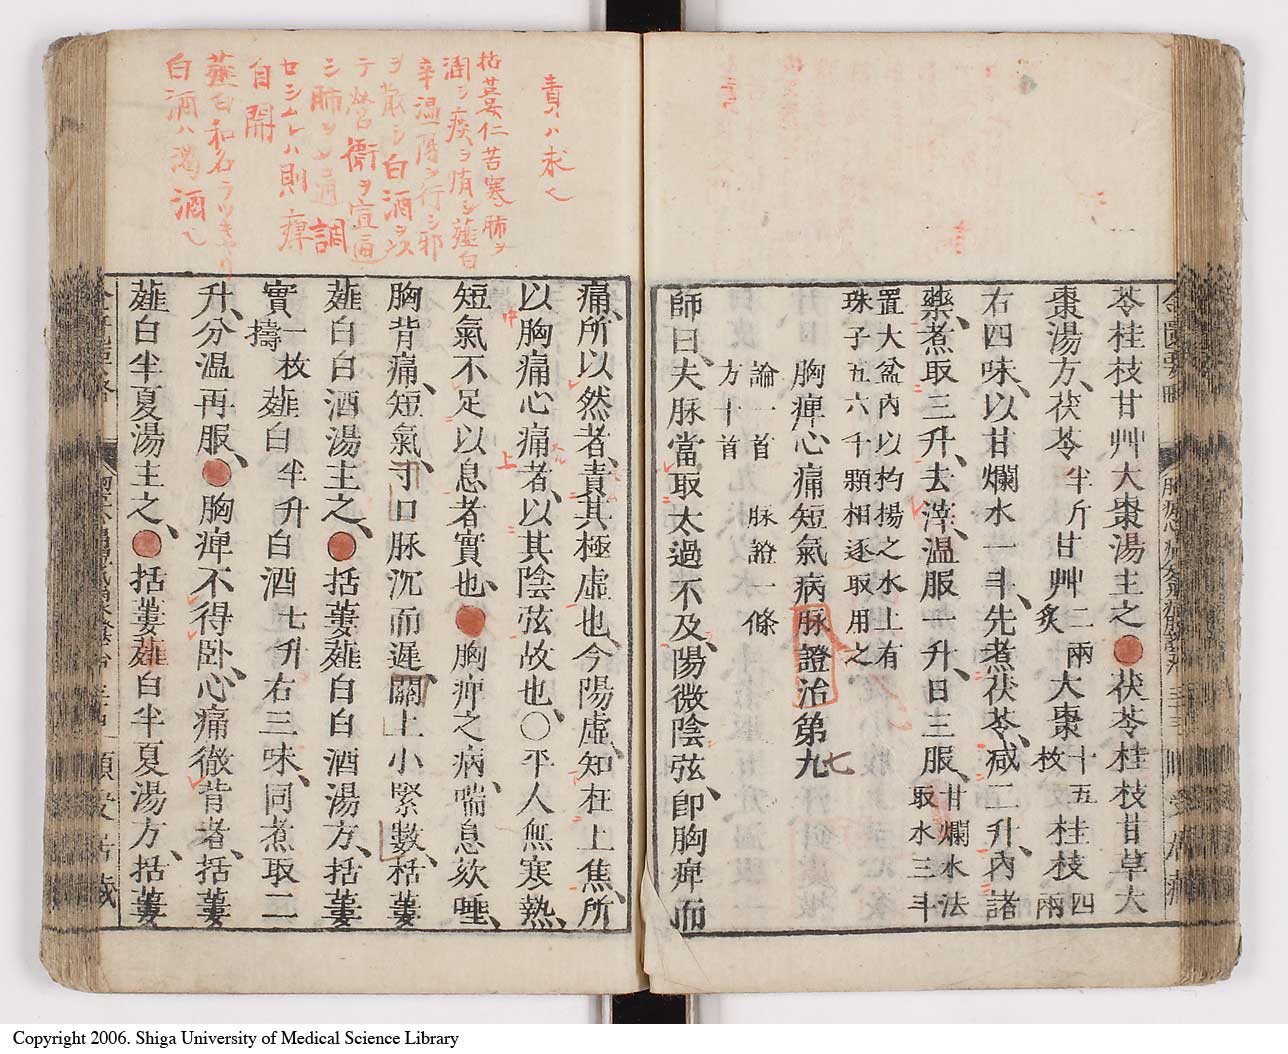 苓桂枝甘艸大棗湯主之●茯苓桂枝甘草大
棗湯方、茯苓半斤甘艸二兩炙大棗十五枚桂枝四兩
右四味、以甘爛水一斗、先煮茯苓、減二升、內諸
藥、煮取三升、去滓、溫服一升、日三服、甘爛水法取水三斗
置大盆內以杓揚之水上有
珠子五六千顆相逐取用之
胸痺心痛短氣病脉證治第九
七
論一首 脉證一條
方十首
師曰、夫脉當取太過不及、陽微陰弦、卽胸痺而
痛、所以然者、責其極虛也、今陽虛、知在上焦、所
以胸痛心痛者、以其陰弦故也、○平人無寒熱、
短氣不足以息者實也、●胸痺之病、喘息欬唾、
胸背痛、短氣、寸口脉沉而遲、關上小緊數、栝蔞
薤白白酒湯主之、●括蔞薤白白酒湯方、括蔞
實一枚擣薤白半升白酒七升右三味、同煮取二
升、分溫再服、●胸痺不得臥、心痛徹背者、括蔞
薤白半夏湯主之、●括蔞薤白半夏湯方、括蔞
責ハ求也
栝蔞仁苦寒肺ヲ
潤シ痰ヲ
辛溫陽ヲ行シ邪
ヲ散シ白酒ヲ以
テ營衞ヲ宣
シ肺ヲ 調
セシムレハ則痺
自開
薤白和名ラツキヤウ
白酒ハ濁酒也
Copyright 2006. Shiga University of Medical Science Library